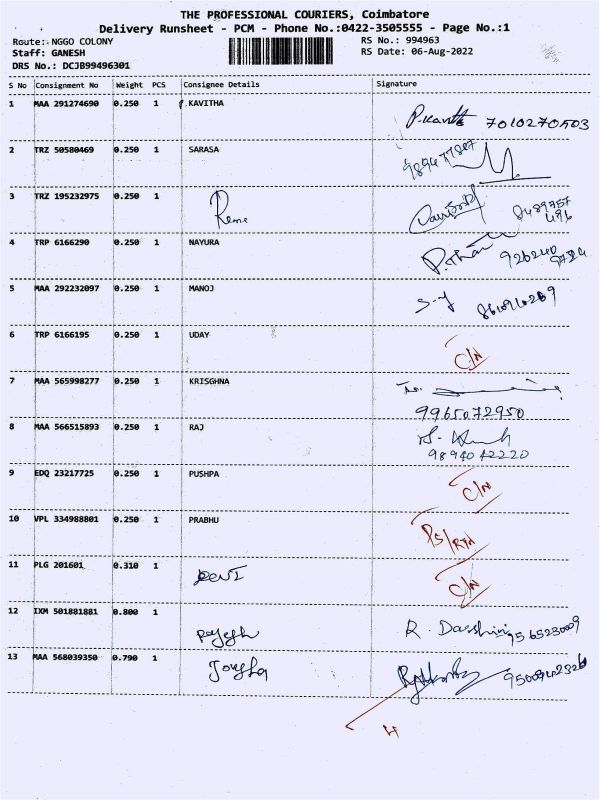 THE PROFESSIONAL COURIERS, Coimbatore
Delivery Runsheet - PCM - Phone No.:0422-3505555 - Page No.:1
Route: NGGO COLONY RS No.: 994963
Staff: GANESH RS Date: 06-Aug-2022
DRS No.: DCJB99496301
S No Consignment No Weight PCS Consignee Details Signature
1 MAA 291274690 0.250 1 P.KAVITHA 7010270503
2 TRZ 50580469 0.250 1 SARASA
3 TRZ 195232975 0.250 1
4 TRP 6166290 0.250 1 NAYURA
5 MAA 292232097 0.250 1 MANOJ
6 TRP 6166195 0.250 1 UDAY C/N
7 MAA 565998277 0.250 1 KRISGHNA
9965072950
8 MAA 566515893 0.250 1 RAJ
9894042220
9 EDQ 23217725 0.250 1 PUSHPA C/N
10 VPL 334988801 0.250 1 PRABHU
11 PLG 201601 0.310 1 DEVI C/N
12 IXM 501881881 0.800 1 R. Darshini
13 MAA 568039350 0.790 1